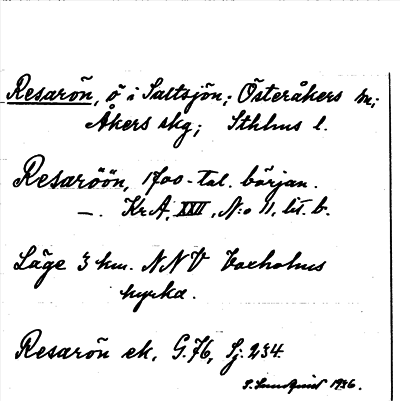 Resarön, ö i Saltsjön; Österåkers sn;
Åkers skg; Sthlms l.
Resaröön, 1700-tal. början.
—. Kr A, XXII, N:o 11, lit. b.
Läge 3 km. NNV Vaxholms
kyrka.
Resarön ek, G. 76, Sj. 234
1936.